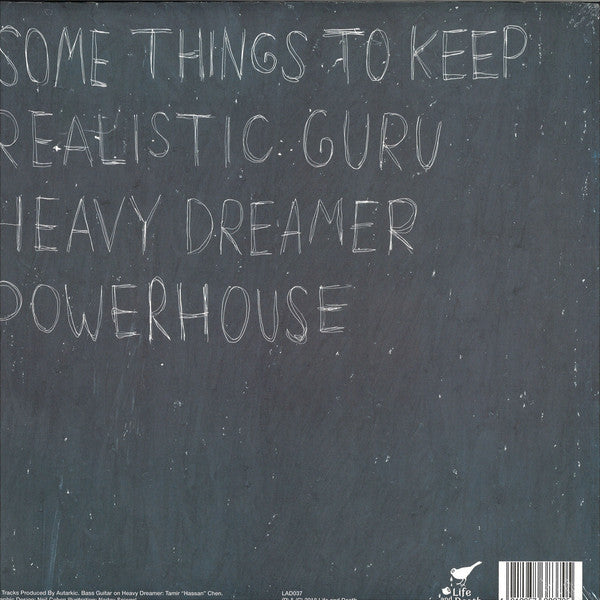 SOME THINGS TO KEEP
REALISTIC GURU
HEAVY DREAMER
POWERHOUSE
Tracks Produced By Autarkic. Bass Guitar on Heavy Dreamer: Tamir "Hassan" Chen.
LAD037
Life
and Death